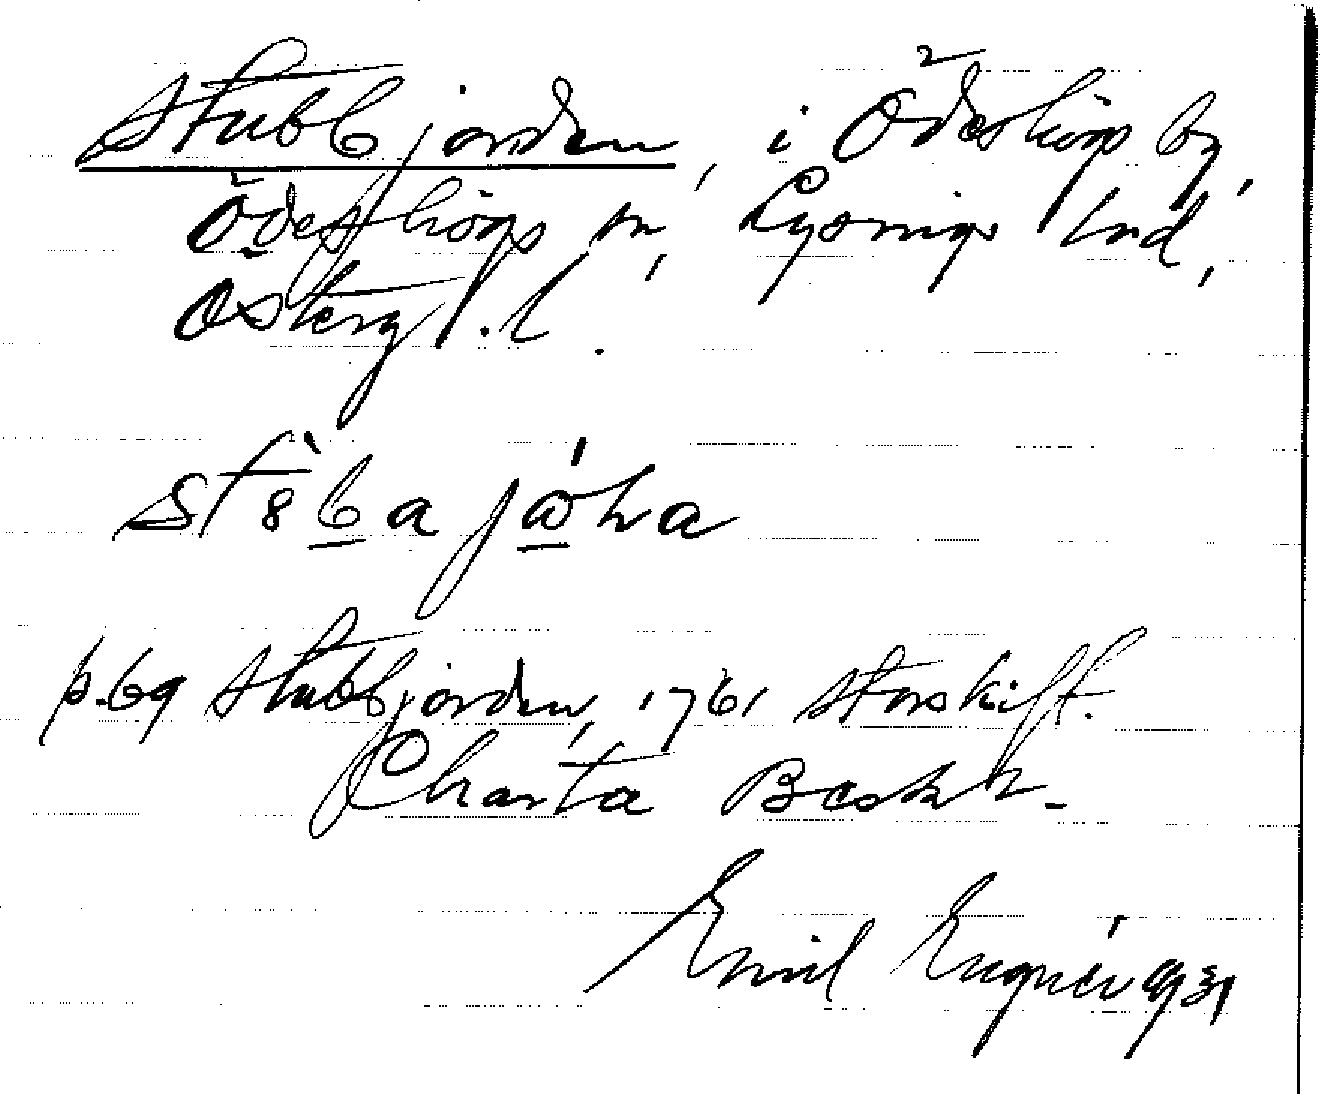 Stubbjorden, i Ödeshögs by,
Ödeshögs sn, Lysings hd,
Österg l.
p. 69 Stubbjorden, 1761 Storskift.
Charta Beskr.
Emil 1931